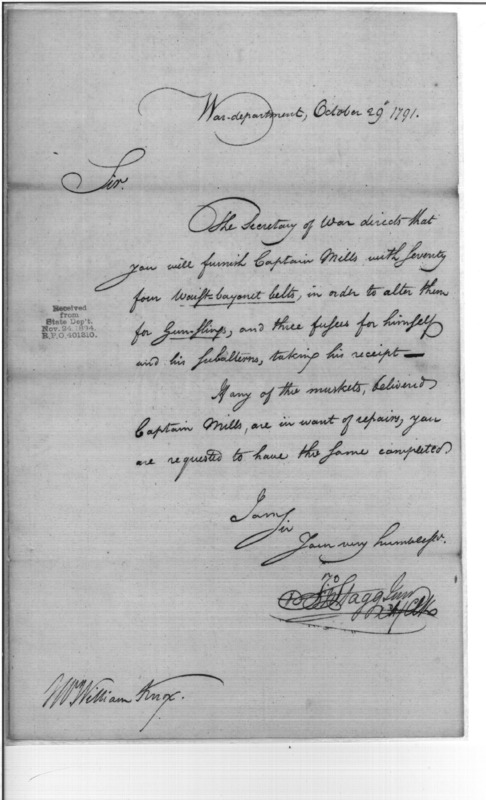 War-department, October 29th 1791.
Sir.
The Secretary of War directs that
you will furnish Captain Mills with seventy
four Waist-bayonet belts, in order to alter them
for Gun-slings, and three fusees for himself
and his subalterns, taking his receipt—
If any of the muskets, delivered
Captain Mills, are in want of repairs, you
are requested to have the same completed
I am
Sir
Your very humble Sr.
Jno Stagg Junr
Clk
Mr William Knox.
Received
from
State Dep't.
Nov. 24, 1894,
R.P.O. 401210.